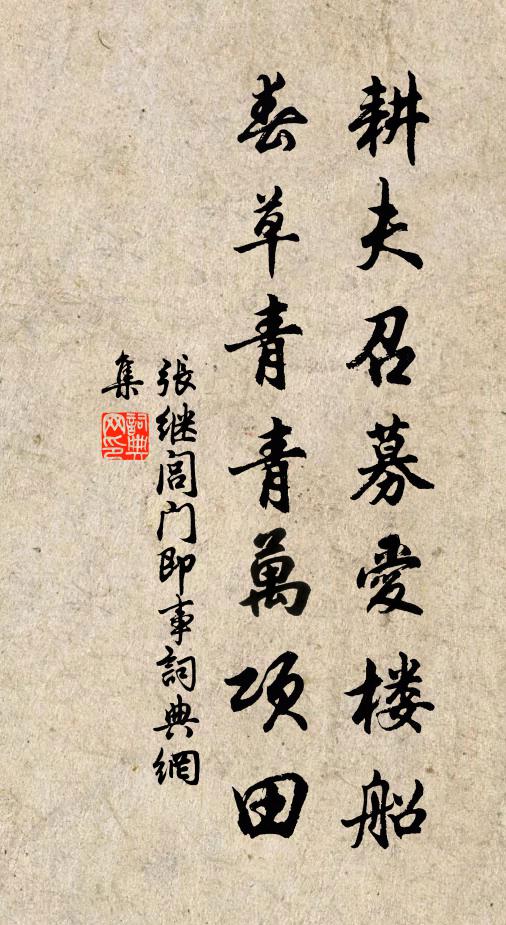 耕夫召募爱楼船
春草青青萬项田
張继閶门即事詞典網
集
詞典网印